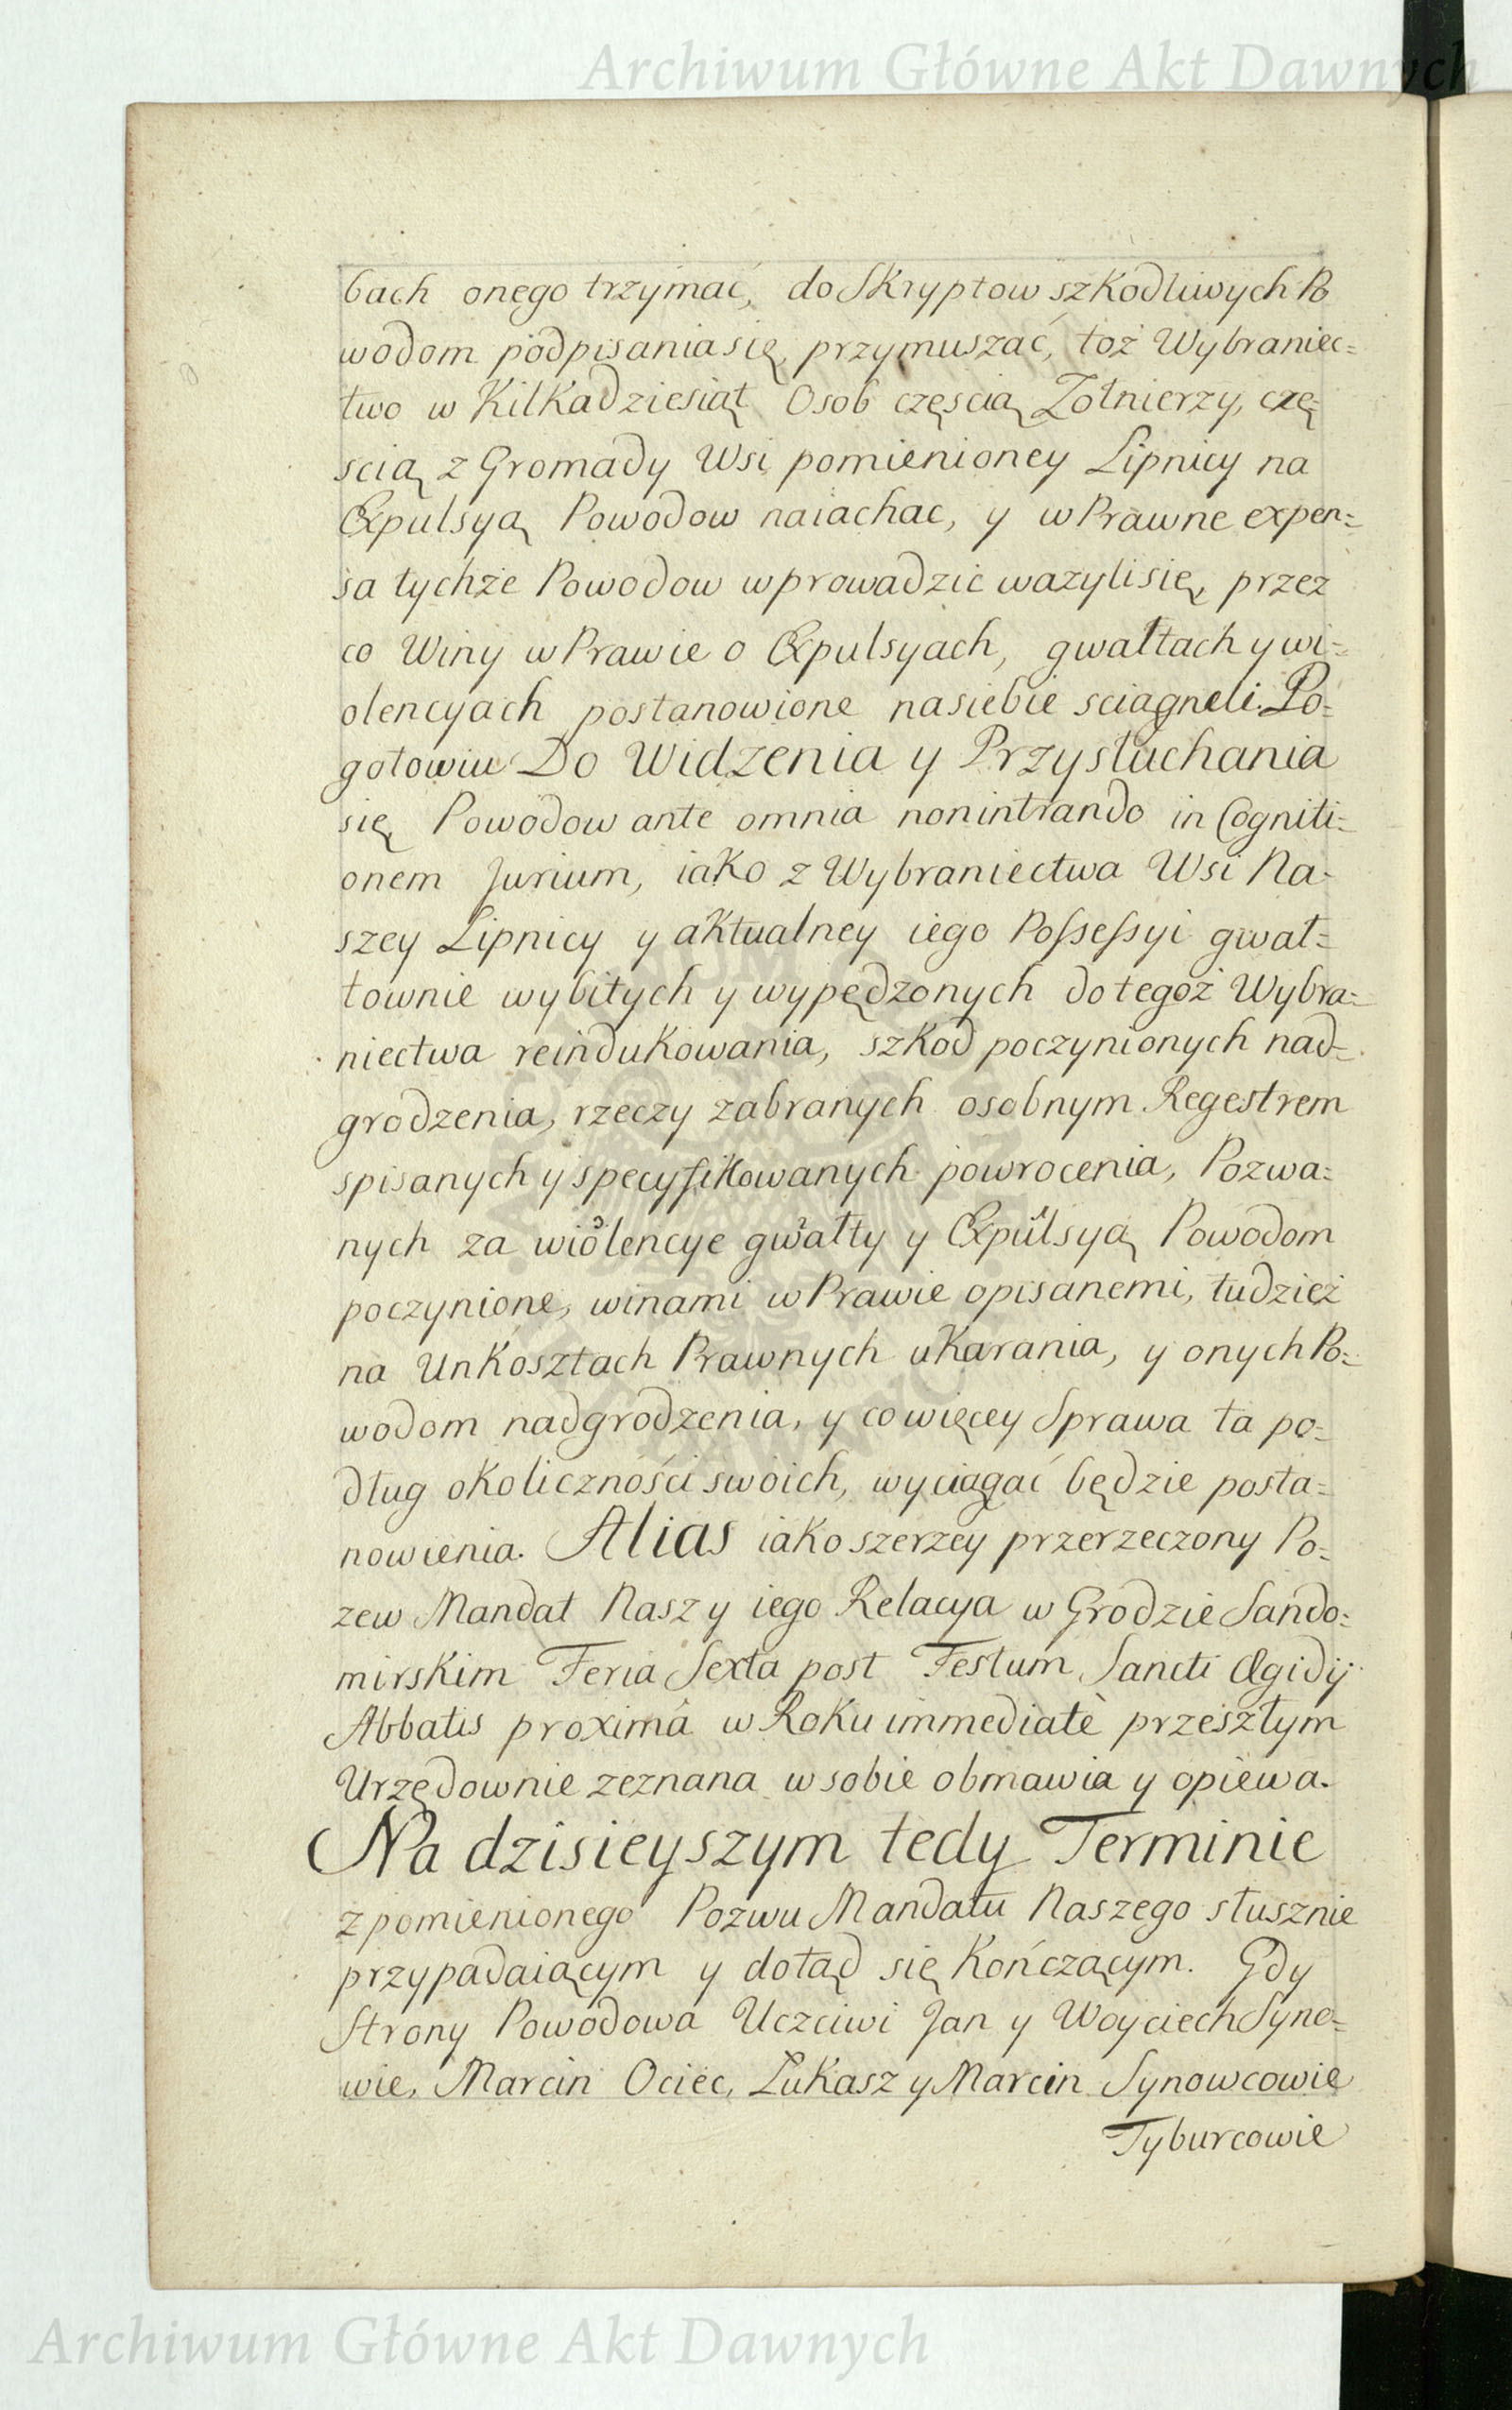 Archiwum Główne Akt Dawnych
bach onego trzymać, do Skryptow szkodliwych Po
wodom podpisania się przymuszać, toż Wybraniec=
two w Kilkadziesiąt Osob częscią Żołnierzy, czę=
scią z Gromady Wsi pomienioney Lipnicy na
Expulsyą Powodow naiachac, y w Prawne expen=
sa tychże Powodow wprowadzic wazyli się, przez
co Winy w Prawie o Expulsyach, gwałtach y wi=
olencyach postanowione na siebie sciagneli. Po=
gotowiu Do Widzenia y Przysłuchania
się Powodow ante omnia non intrando in Cogniti=
onem Jurium, iako z Wybraniectwa Wsi Na=
szey Lipnicy y aktualney iego Possessyi gwał=
townie wybitych y wypędzonych do tegoż Wybra=
niectwa reindukowania, szkod poczynionych nad=
grodzenia, rzeczy zabranych osobnym Regestrem
spisanych y specyfikowanych powrocenia, Pozwa=
nych za wiolencye gwałty y Expulsyą Powodom
poczynione, winami w Prawie opisanemi, tudzież
na Unkosztach Prawnych ukarania, y onych Po=
wodom nadgrodzenia, y co więcey Sprawa ta po=
dług okoliczności swoich, wyciągać będzie posta=
nowienia. Alias iako szerzey przerzeczony Po=
zew Mandat Nasz y iego Relacya w Grodzie Sando=
mirskim Feria Sexta post Festum Sancti Ægidij
Abbatis proximâ w Roku immediatè przeszłym
Urzędownie zeznana w sobie obmawia y opiewa.
Na dzisieyszym tedy Terminie
z pomienionego Pozwu Mandatu Naszego słusznie
przypadaiącym y dotąd się kończącym. Gdy
Strony Powodowa Uczciwi Jan y Woyciech Syno=
wie, Marcin Ociec, Łukasz y Marcin Synowcowie
Tyburcowie
Archiwum Główne Akt Dawnych